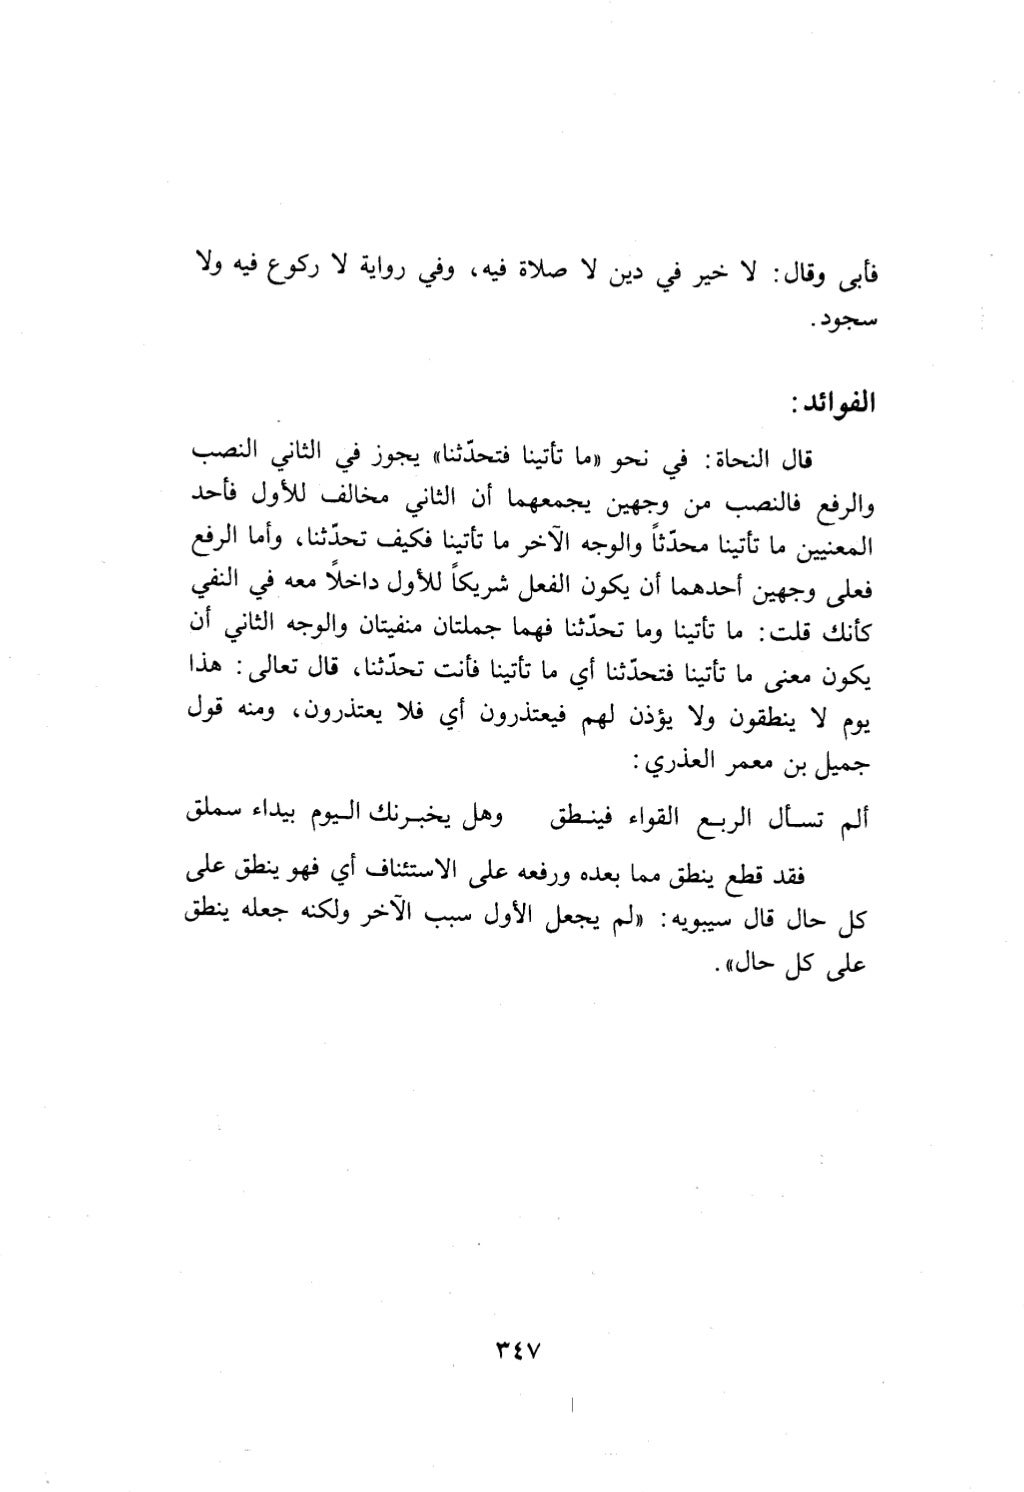 فأبى وقال: لا خير في دين لا صلاة فيه، وفي رواية لا ركوع فيه ولا
سجود.
الفوائد:
قال النحاة: في نحو «ما تأتينا فتحدّثنا» يجوز في الثاني النصب
والرفع فالنصب من وجهين يجمعهما أن الثاني مخالف للأول فأحد
المعنيين ما تأتينا محدّثاً والوجه الآخر ما تأتينا فكيف تحدّثنا، وأما الرفع
فعلى وجهين أحدهما أن يكون الفعل شريكاً للأول داخلاً معه في النفي
كأنك قلت: ما تأتينا وما تحدّثنا فهما جملتان منفيتان والوجه الثاني أن
يكون معنى ما تأتينا فتحدّثنا أي ما تأتينا فأنت تحدّثنا، قال تعالى: هذا
يوم لا ينطقون ولا يؤذن لهم فيعتذرون أي فلا يعتذرون، ومنه قول
جميل بن معمر العذري:
ألم تسأل الربع القواء فينطق وهل يخبرنك اليوم بيداء سملق
فقد قطع ينطق مما بعده ورفعه على الاستئناف أي فهو ينطق على
كل حال قال سيبويه: «لم يجعل الأول سبب الآخر ولكنه جعله ينطق
على كل حال».
٣٤٧